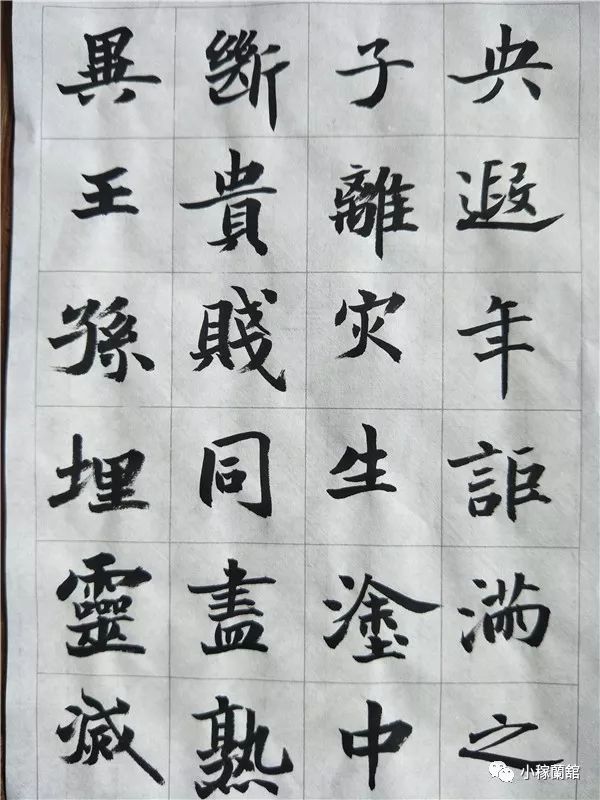 央遐年詎滿之
子離灾生塗中
斷貴賤同盡熟
異王孫埋靈滅
小稼蘭舘